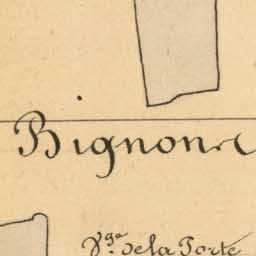 Bignon
Vge de la Porte